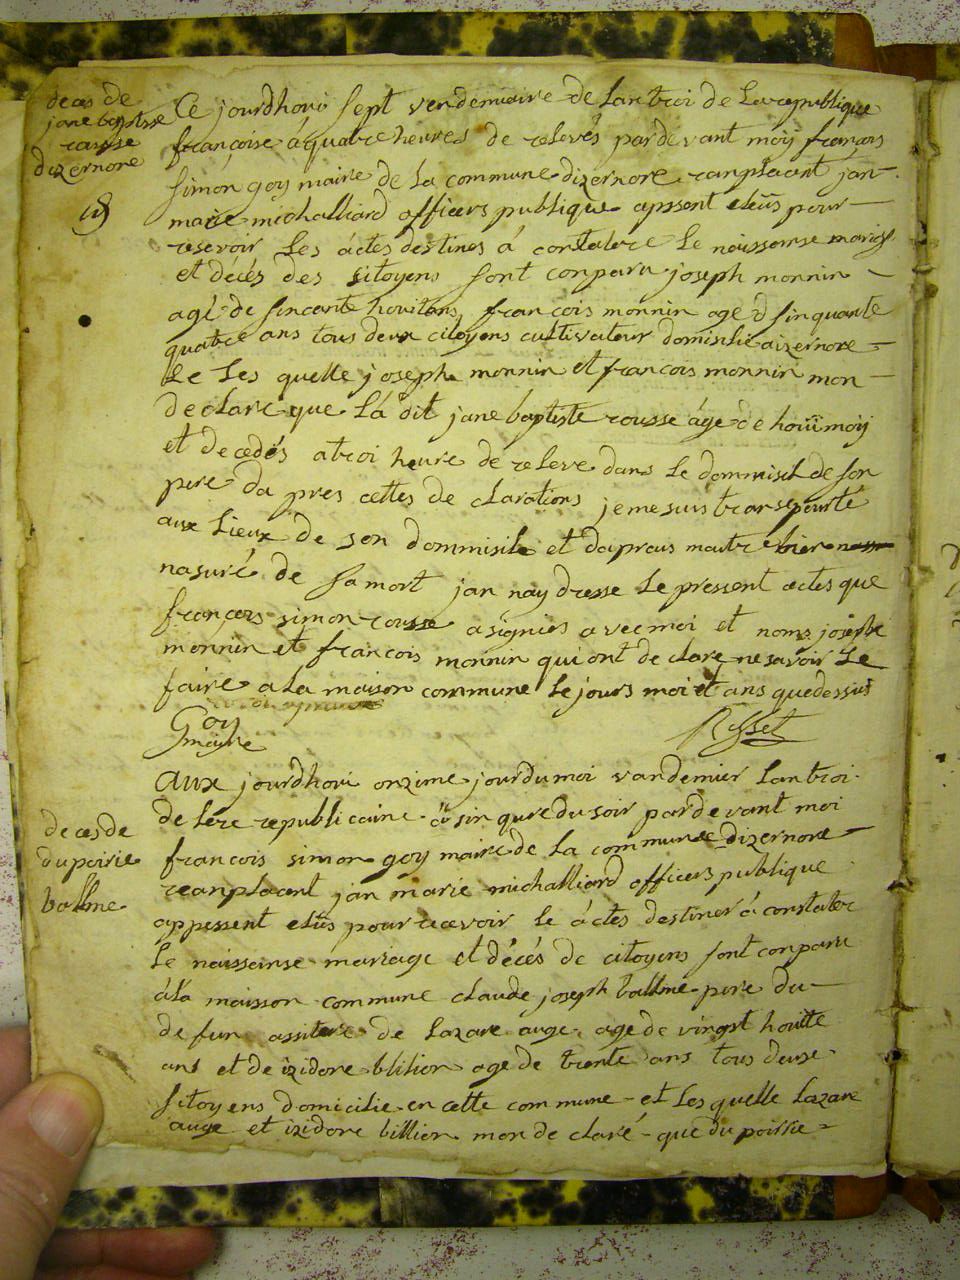 deces de
jane baptiste
rousse
dizernore
Ce jourdhoui sept vendemiaire de lan troi de La republique
françoise à quatre heures de relevés pardevant moy françois
simon goy maire de la commune dizernore ranplacant jan
marie michalliard officers publique apssent elüs pour
resevoir les actes destines á constatere le naissense mariage
et décés des sitoyens sont conparu joseph monnin
agé de sincante houitans françois monnin age d sinquante
quatre ans tous deux citoyens cultivateur domisilie aizernore
Le Les quelle joseph monnin et francois monnin mon
declare que la dit jane baptiste rousse áge de houi moÿ
et decedés atroi heure de releve dans le dommisil de son
pere da pres cettes de clarations jemesuis transepourte
aux lieux de son dommisile et daprais maitre bien
nasuré de sa mort jan nay dresse le pressent actes que
françois simon rousse asignies avec moi et noms joseph
monnin et francois monnin qui ont de clare ne savoir Le
faire a la maison commune le jours moi et ans quedessus
Goy
maire
Rosset
aux jourdhoui onzime jour du moi vandemier lan troi
de lére republicaine á sin qure du soir pardevant moi
deces de
dupoirie
ballme
francois simon goy maire de la commune dizernore
reanplacent jan marie michalliard officers publique
appessent elüs pour recevoir le áctes destiner á constater
le naissainse mariage et décés de citoyens sont conparu
á la maisson commune claude joseph ballme pere du
defun assitere de lazare auge age de vingt houite
ans et de izidore blilion age de trente ans tous deuxe
sitoyens domicilie en cette commune et les quelle lazare
auge et izidore billion mon de claré que du poissie